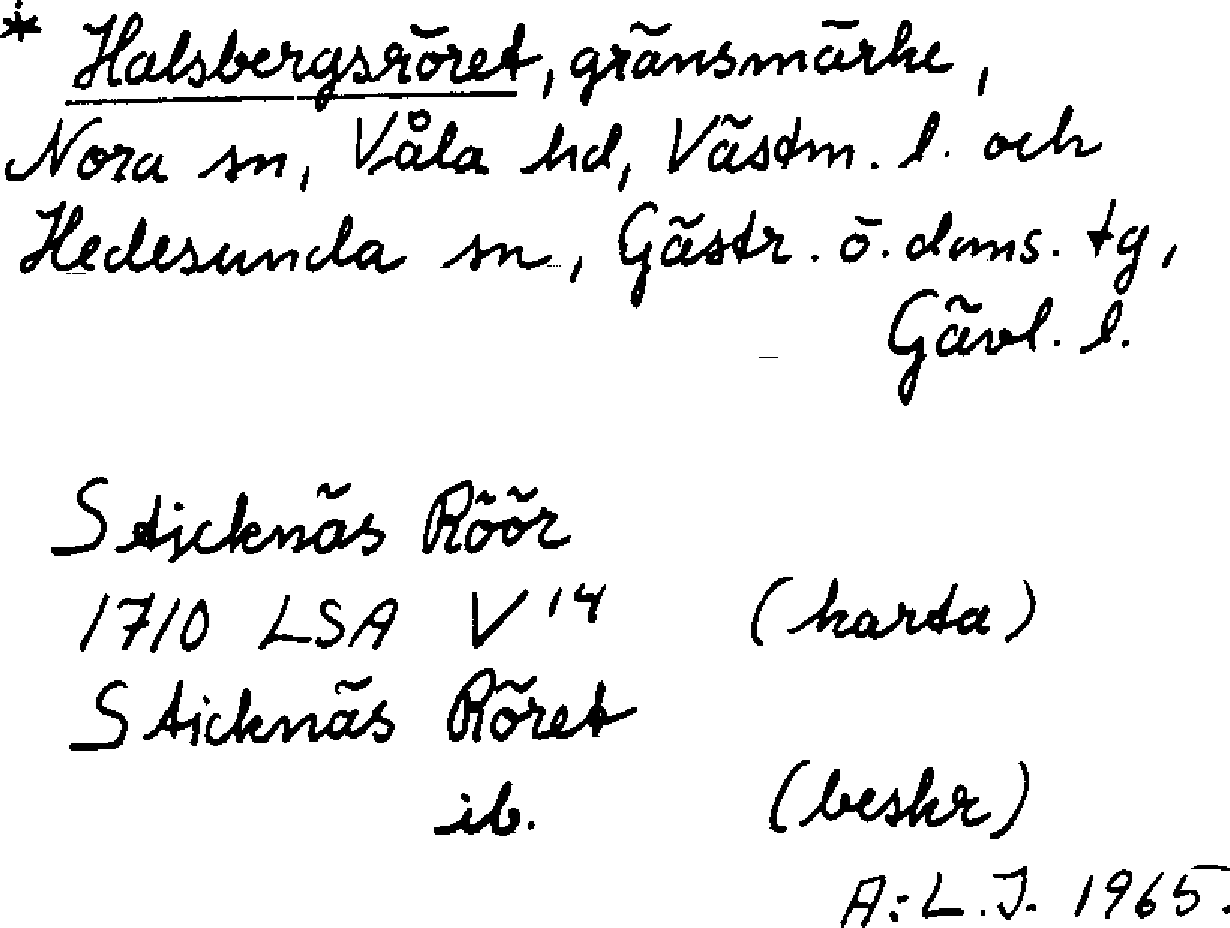 * Halsbergsröret, gränsmärke,
Nora sn, Våla hd, Västm. l. och
Hedesunda sn, Gästr. ö. doms. tg,
Gävl. l.
Sticknäs Röör
1710 LSA V 14 (karta)
Sticknäs Röret
ib. (beskr)
A:L.J. 1965.